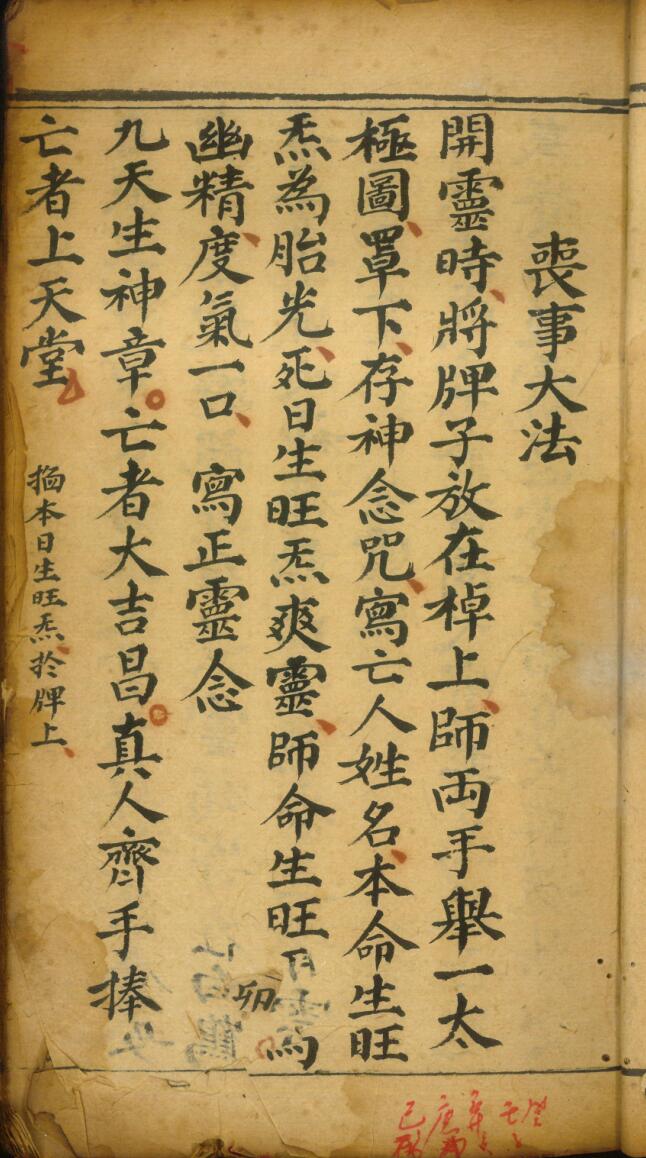 喪事大法
開靈時將牌子放在棹上師両手舉一太
極圖罩下存神念咒寫亡人姓名本命生旺
炁為胎光死日生旺炁爽靈師命生旺為
幽精度氣一口 寫正靈念
九天生神章亡者大吉昌真人齊手捧
亡者上天堂
本日生旺炁於牌上
卯